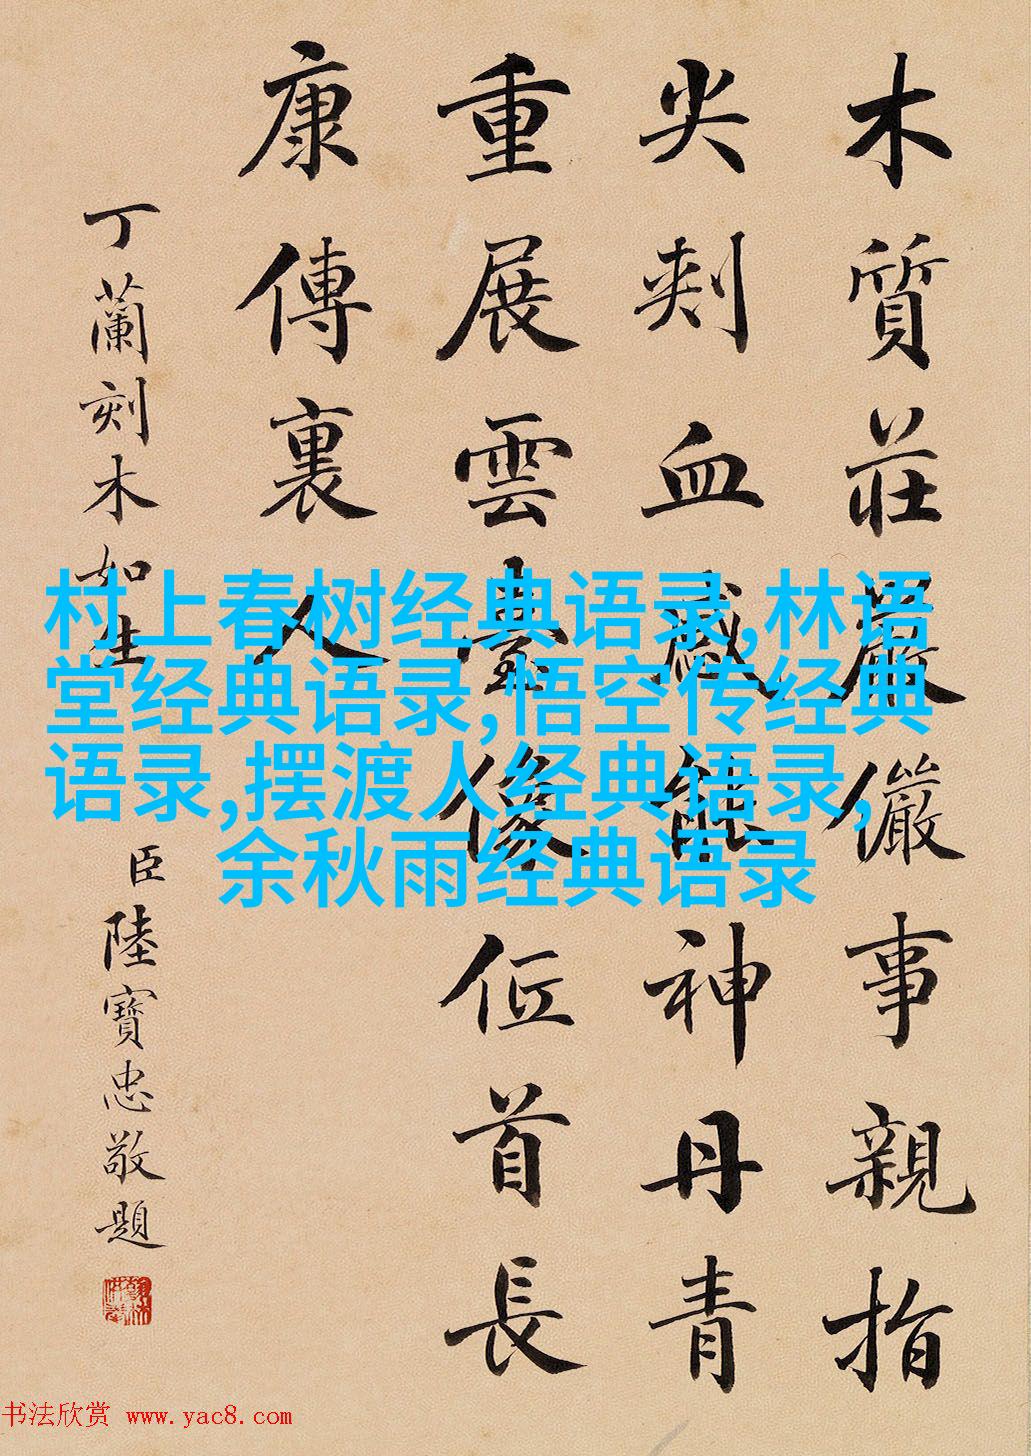 木質莊嚴儼事親指
尖刾血感能神丹青
重展雲臺像位首長
康傳裏人
丁蘭刻木如生
臣陸寶忠敬題
村上春树经典语录,林语
堂经典语录,悟空传经典
语录,摆渡人经典语录,
余秋雨经典语录
书法欣赏 www.yac8.com